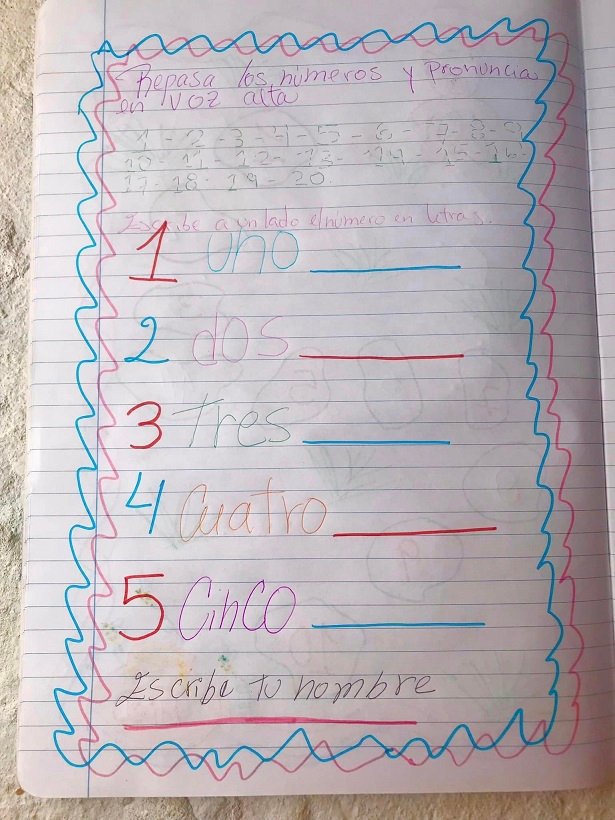 Repasa los números y pronuncia
en voz alta
1 - 2 - 3 - 4 - 5 - 6 - 7 - 8 - 9
10 - 11 - 12 - 13 - 14 - 15 - 16 -
17 - 18 - 19 - 20.
Escribe a un lado el número en letras.
1 uno
2 dos
3 tres
4 cuatro
5 cinco
Escribe tu nombre